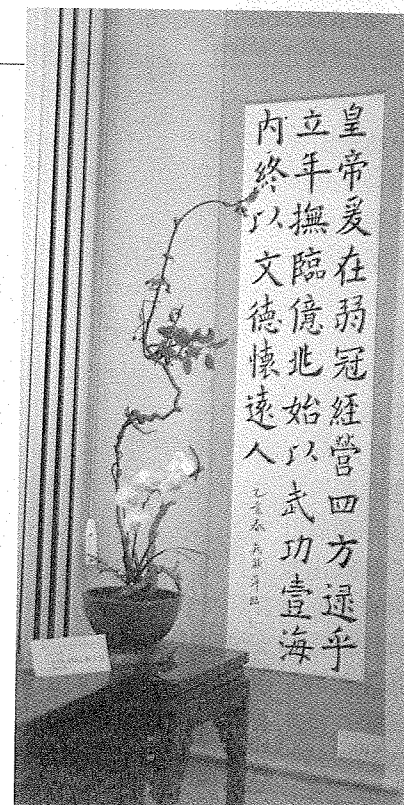 皇帝爰在弱冠經營四方逯乎
立年撫臨億兆始以武功壹海
内終以文德懷遠人